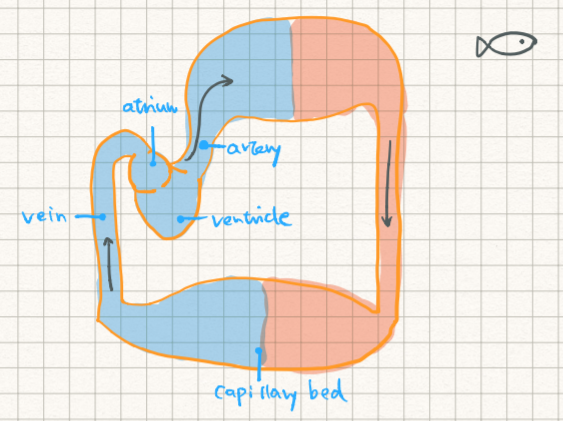 atrium
artery
vein
ventricle
capillary bed